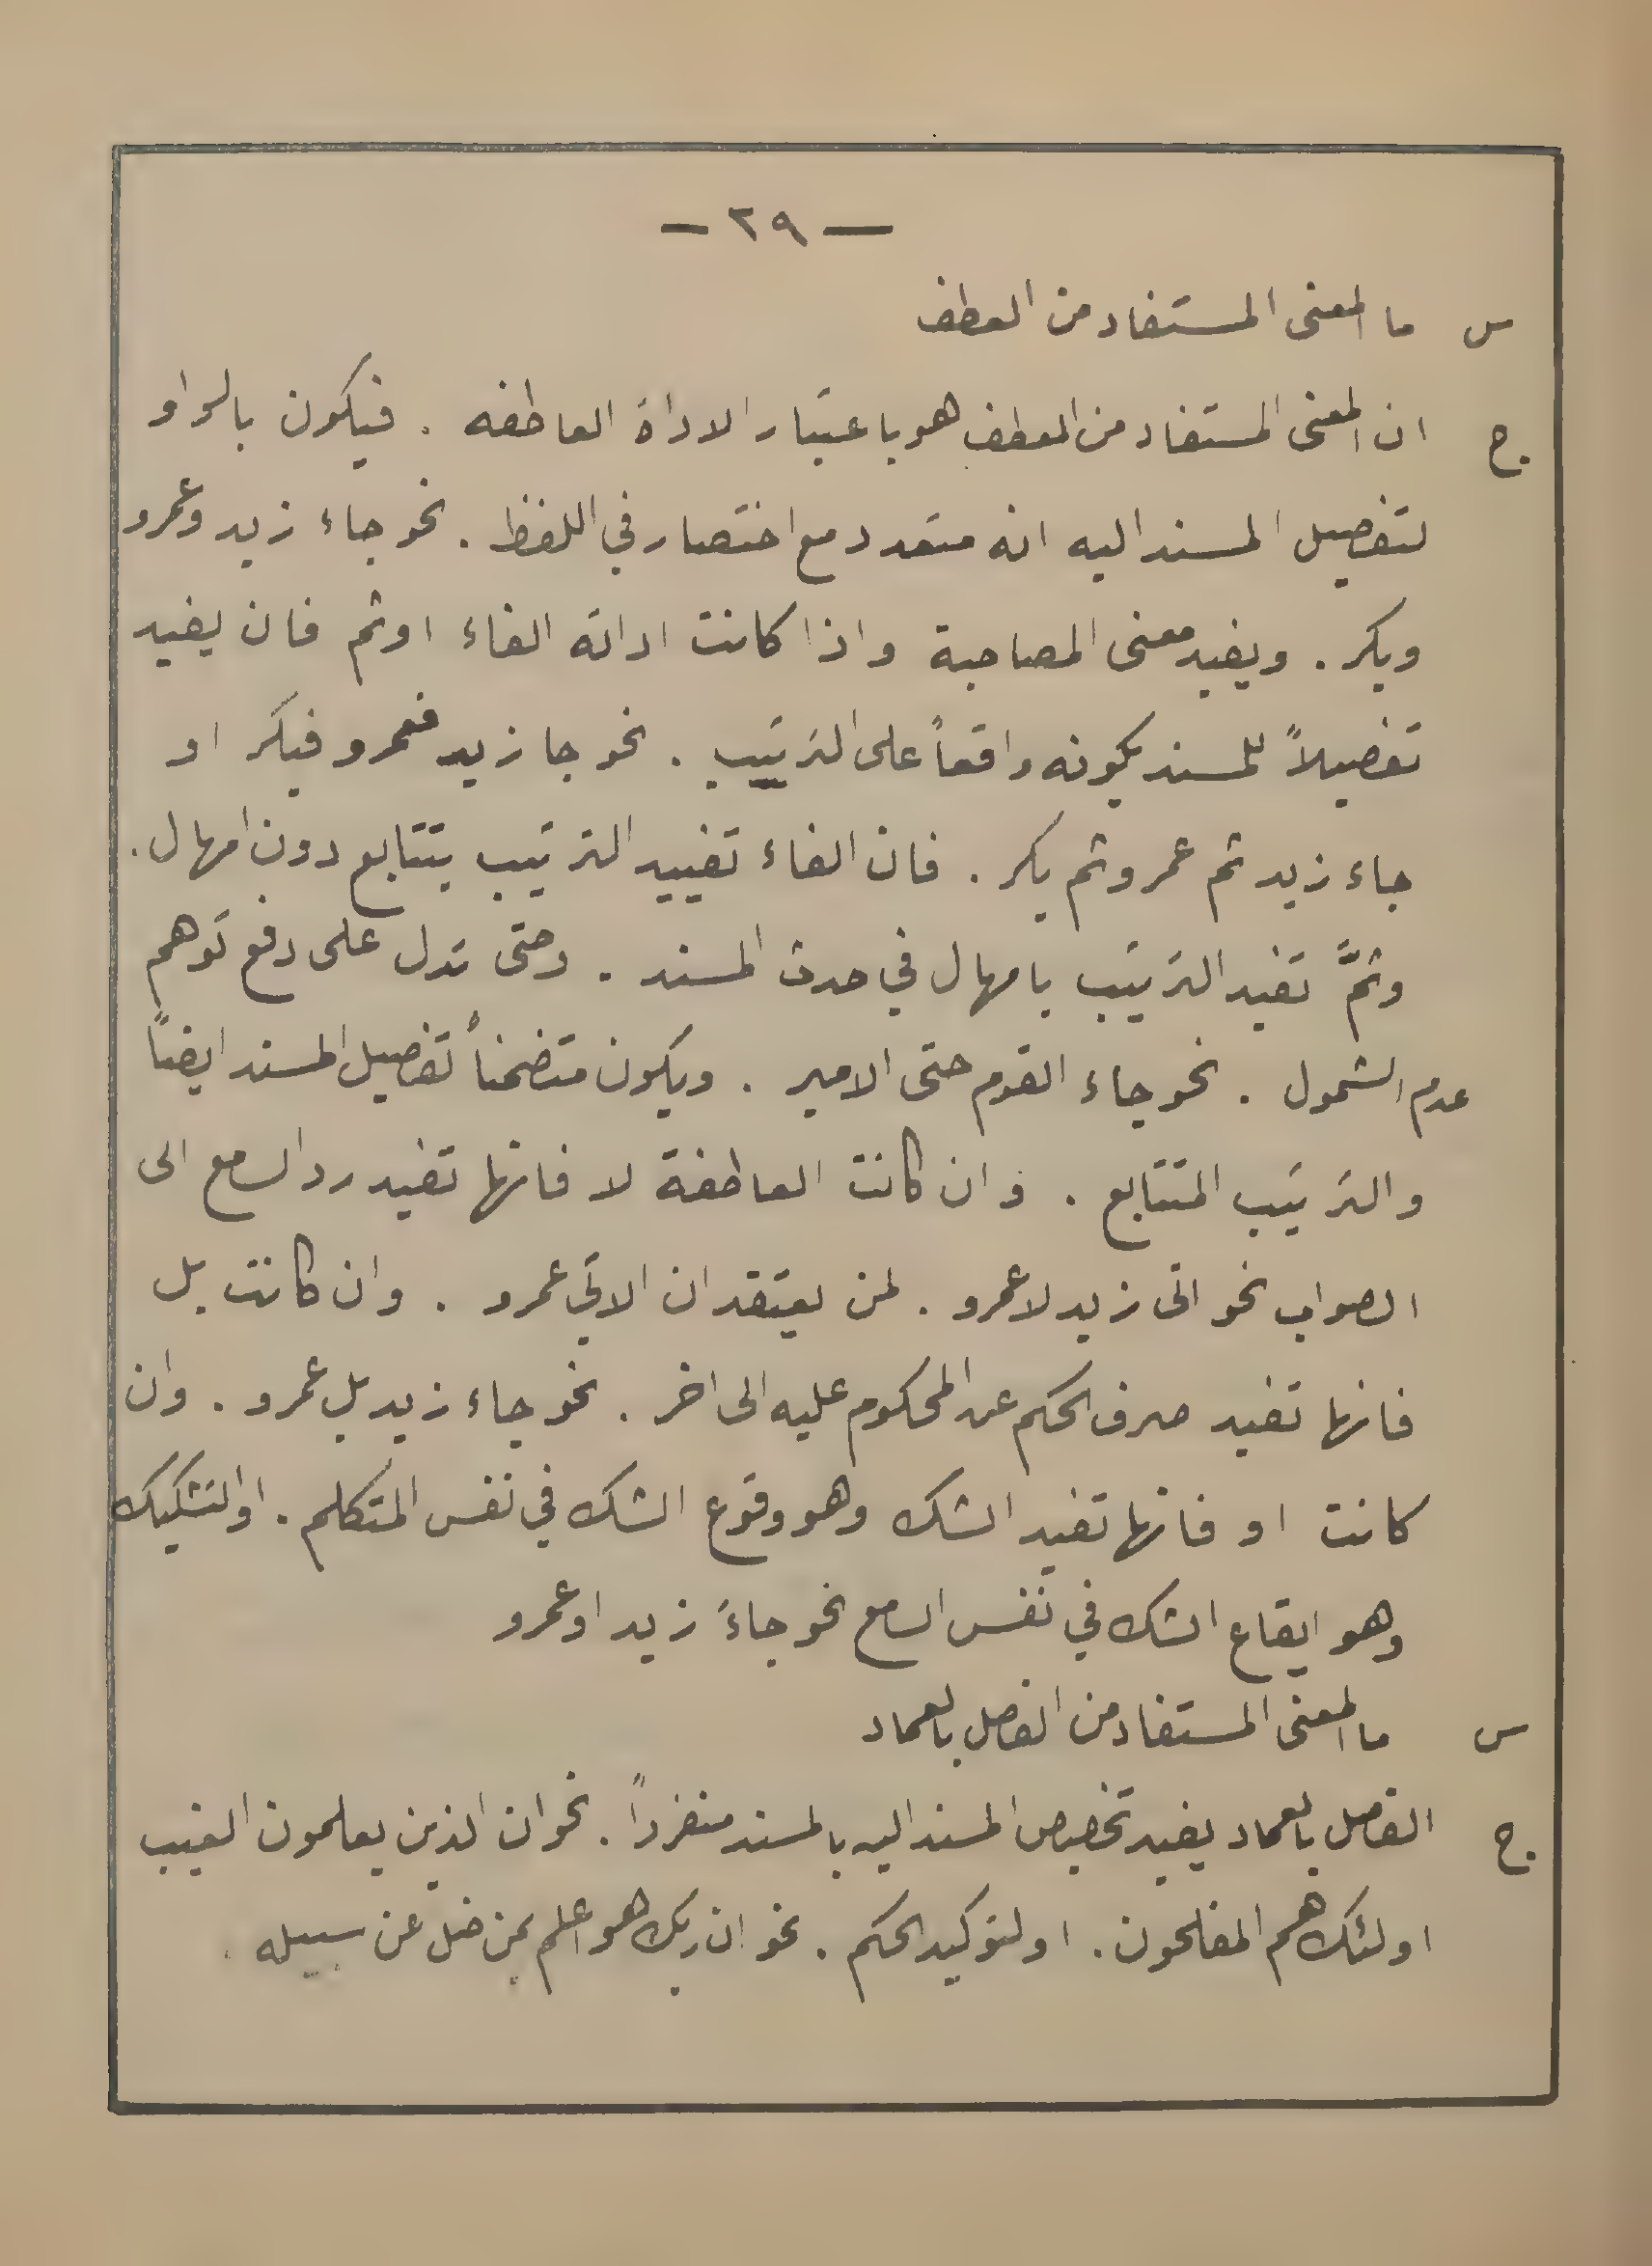 — ٢٩ —
س ما المعنى المستفاد من العطف
ج ان المعنى المستفاد من العطف هو باعتبار الاداة العاطفه . فيكون بالواو
لتفصيل المسند اليه انه متعدد مع اختصار في اللفظ . نحو جاء زيد وعمرو
وبكر . ويفيد معنى المصاحبة واذا كانت اداته الفاء اوثم فان يفيد
تفصيلاً للمسند بكونه واقعاً على الترتيب . نحو جا زيد فعمرو فبكر او
جاء زيد ثم عمرو ثم بكر . فان الفاء تفييد الترتيب بتتابع دون امهال .
وثمَّ تفيد الترتيب بامهال في حدث المسند . وحتى تدل على دفع توهم
عدم الشمول . نحو جاء القوم حتى الامير . ويكون متضمناً تفصيل المسند ايضاً
والترتيب المتتابع . وان كانت العاطفة لا فانها تفيد رد السامع الى
الصواب نحو اتى زيد لا عمرو . لمن يعتقد ان الاتي عمرو . وان كانت بل
فانها تفيد صرف الحكم عن المحكوم عليه الى اخر . نحو جاء زيد بل عمرو . وان
كانت او فانها تفيد الشك وهو وقوع الشك في نفس المتكلم . او التشكيك
وهو ايقاع الشك في نفس السامع نحو جاءَ زيد او عمرو
س ما المعنى المستفاد من الفصل بالعماد
ج الفصل بالعماد يفيد تخصيص المسند اليه بالمسند منفرداً . نحو ان الذين يعلمون الغيب
اولئك هم المفلحون . او لتوكيد الحكم . نحو ان ربك هو اعلم بمن ضل عن سبيله .